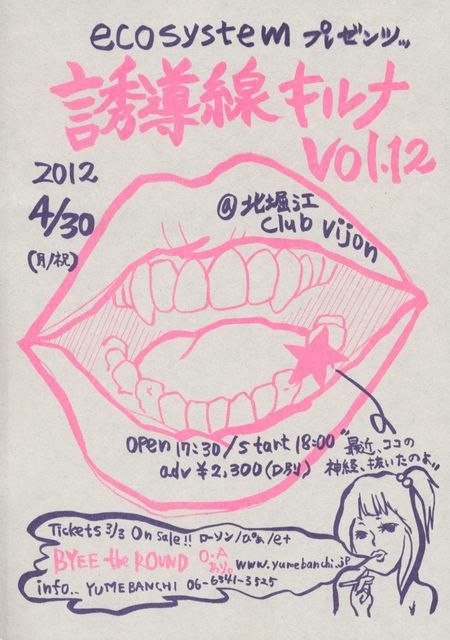 ecosystem プレゼンツ...
誘導線キルナ
Vol.12
2012
4/30
(月/祝)
@北堀江
club vijon
open 17:30 / start 18:00
adv ¥2,300 (D別)
"最近、ココの
神経、抜いたのよ"
Tickets 3/3 On Sale!! ローソン/ぴあ/e+
BYEE the ROUND O.A あり。 www.yumebanchi.jp
info... YUMEBANCHI 06-6341-3525